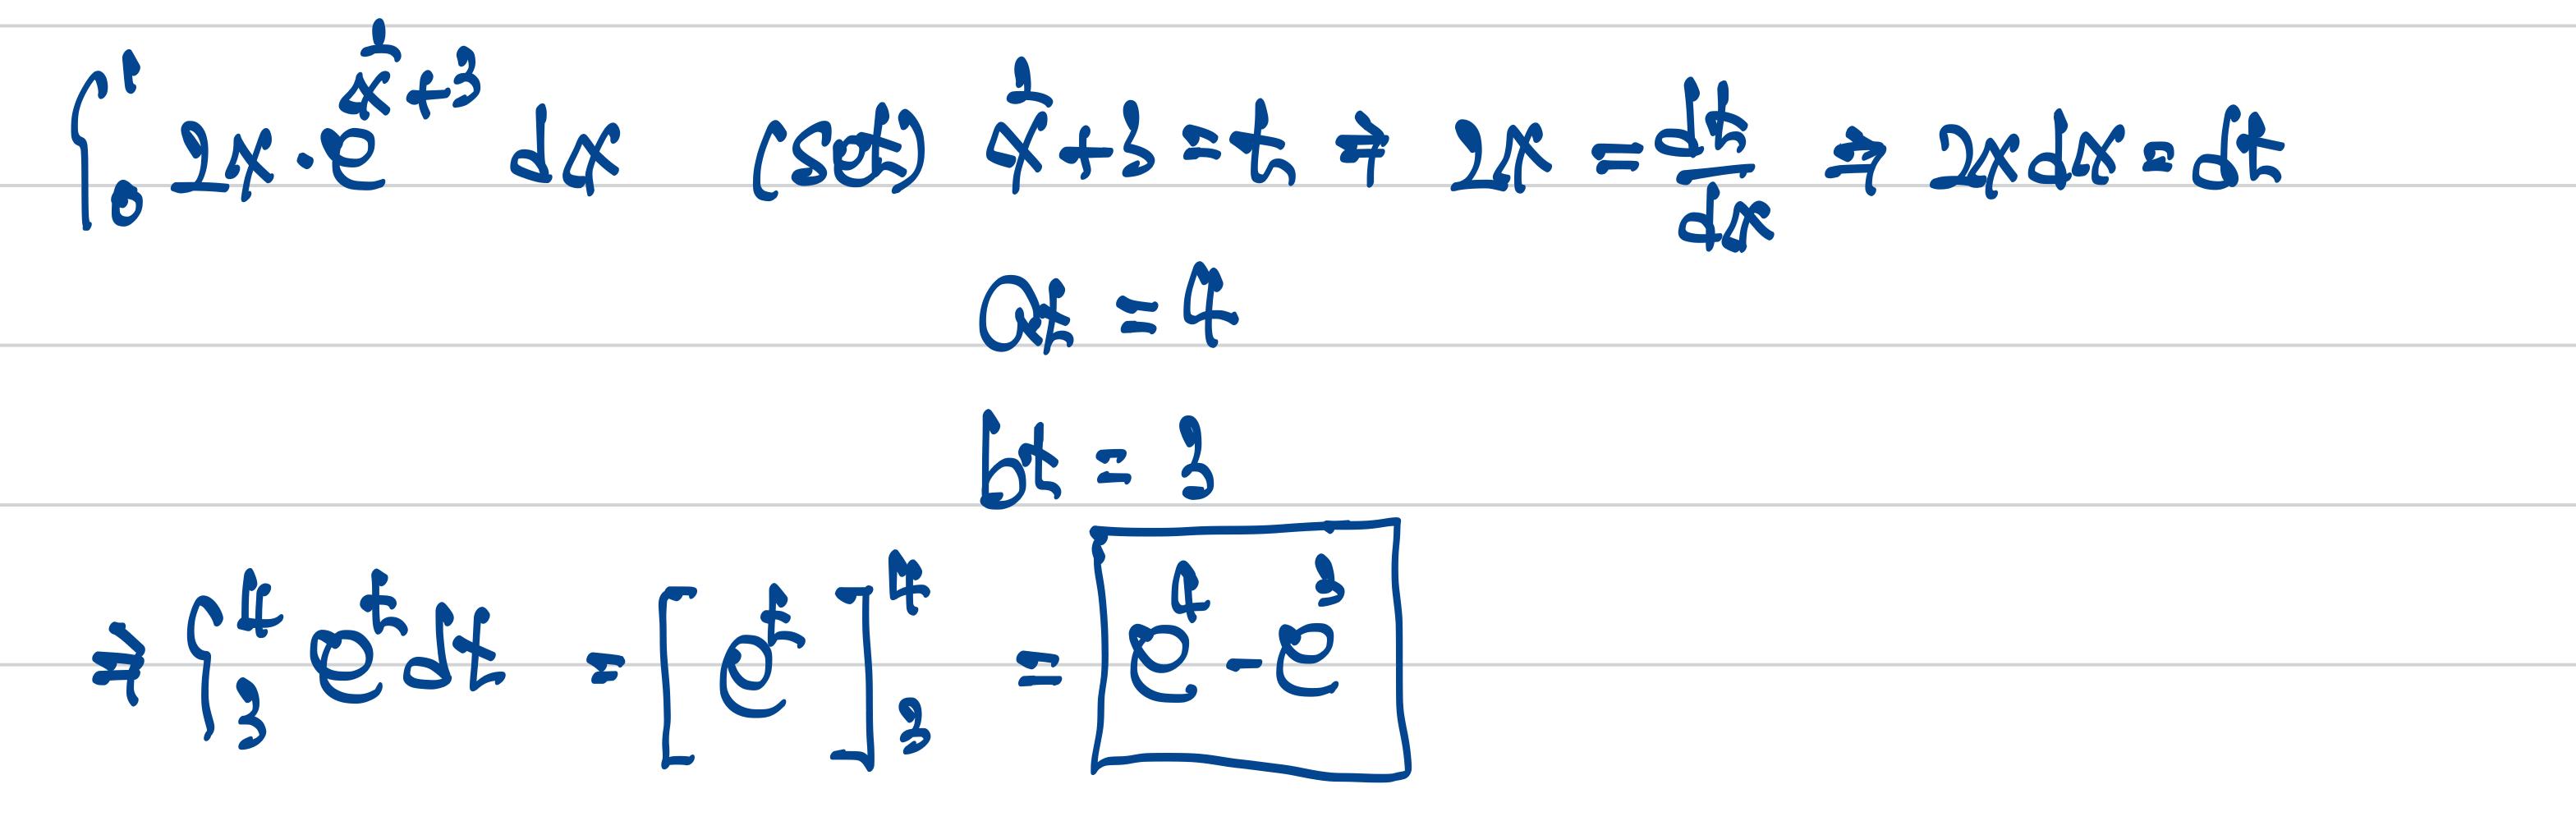 ∫₀¹ 2x · e^(x²+3) dx (set) x²+3 = t ⇒ 2x = dt/dx ⇒ 2x dx = dt
at = 4
bt = 3
⇒ ∫₃⁴ e^t dt = [e^t]₃⁴ = e⁴ - e³